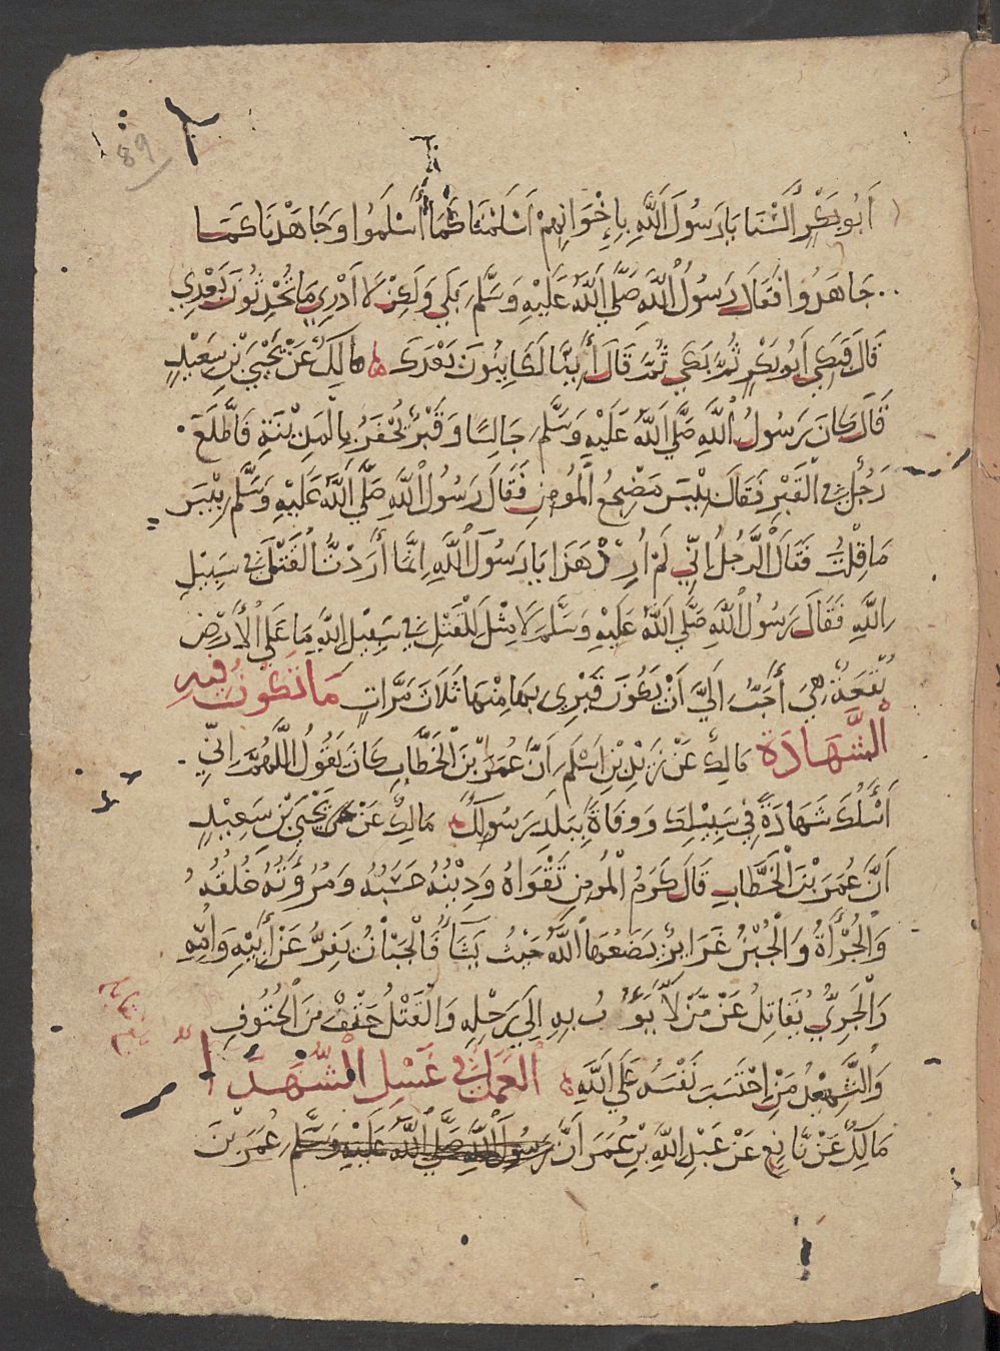 89
أَبُو بَكْرٍ أَلَسْنَا يَا رَسُولَ اللَّهِ بِإِخْوَانِهِمْ أَسْلَمْنَا كَمَا أَسْلَمُوا وَجَاهَدْنَا كَمَا
جَاهَدُوا فَقَالَ رَسُولُ اللَّهِ صَلَّى اللَّهُ عَلَيْهِ وَسَلَّمَ بَلَى وَلَكِنْ لَا أَدْرِي مَا تُحْدِثُونَ بَعْدِي
قَالَ فَبَكَى أَبُو بَكْرٍ ثُمَّ بَكَى ثُمَّ قَالَ أَئِنَّا لَكَائِنُونَ بَعْدَكَ مَالِكٌ عَنْ يَحْيَى بْنِ سَعِيدٍ
قَالَ كَانَ رَسُولُ اللَّهِ صَلَّى اللَّهُ عَلَيْهِ وَسَلَّمَ جَالِسًا وَقَبْرٌ يُحْفَرُ بِالْمَدِينَةِ فَاطَّلَعَ
رَجُلٌ فِي الْقَبْرِ فَقَالَ بِيسَ مَضْجَعُ الْمُومِنِ فَقَالَ رَسُولُ اللَّهِ صَلَّى اللَّهُ عَلَيْهِ وَسَلَّمَ بِيسَ
مَا قُلْتَ فَقَالَ الرَّجُلُ إِنِّي لَمْ أُرِدْ هَذَا يَا رَسُولَ اللَّهِ إِنَّمَا أَرَدْتُ الْقَتْلَ فِي سَبِيلِ
اللَّهِ فَقَالَ رَسُولُ اللَّهِ صَلَّى اللَّهُ عَلَيْهِ وَسَلَّمَ لَا مِثْلَ لِلْقَتْلِ فِي سَبِيلِ اللَّهِ مَا عَلَى الْأَرْضِ
بُقْعَةٌ هِيَ أَحَبُّ إِلَيَّ أَنْ يَكُونَ قَبْرِي بِهَا مِنْهَا ثَلَاثَ مَرَّاتٍ مَا تَكُونُ فِيهِ
الشَّهَادَةُ مَالِكٌ عَنْ زَيْدِ بْنِ أَسْلَمَ أَنَّ عُمَرَ بْنَ الْخَطَّابِ كَانَ يَقُولُ اللَّهُمَّ إِنِّي
أَسْأَلُكَ شَهَادَةً فِي سَبِيلِكَ وَوَفَاةً بِبَلَدِ رَسُولِكَ مَالِكٌ عَنْ يَحْيَى بْنِ سَعِيدٍ
أَنَّ عُمَرَ بْنَ الْخَطَّابِ قَالَ كَرَمُ الْمُومِنِ تَقْوَاهُ وَدِينُهُ حَسَبُهُ وَمُرُوءَتُهُ خُلُقُهُ
وَالْجُرْأَةُ وَالْجُبْنُ غَرَائِزُ يَضَعُهَا اللَّهُ حَيْثُ يَشَاءُ فَالْجَبَانُ يَفِرُّ عَنْ أَبِيهِ وَأُمِّهِ
وَالْجَرِيُّ يُقَاتِلُ عَنْ مَنْ لَا يَؤُوبُ بِهِ إِلَى رَحْلِهِ وَالْقَتْلُ حَتْفٌ مِنَ الْحُتُوفِ
وَالشَّهِيدُ مَنِ احْتَسَبَ نَفْسَهُ عَلَى اللَّهِ الْعَمَلُ فِي غَسْلِ الشُّهَدَاءِ
مَالِكٌ عَنْ نَافِعٍ عَنْ عَبْدِ اللَّهِ بْنِ عُمَرَ أَنَّ رَسُولَ اللَّهِ صَلَّى اللَّهُ عَلَيْهِ وَسَلَّمَ عُمَرَ بْنَ